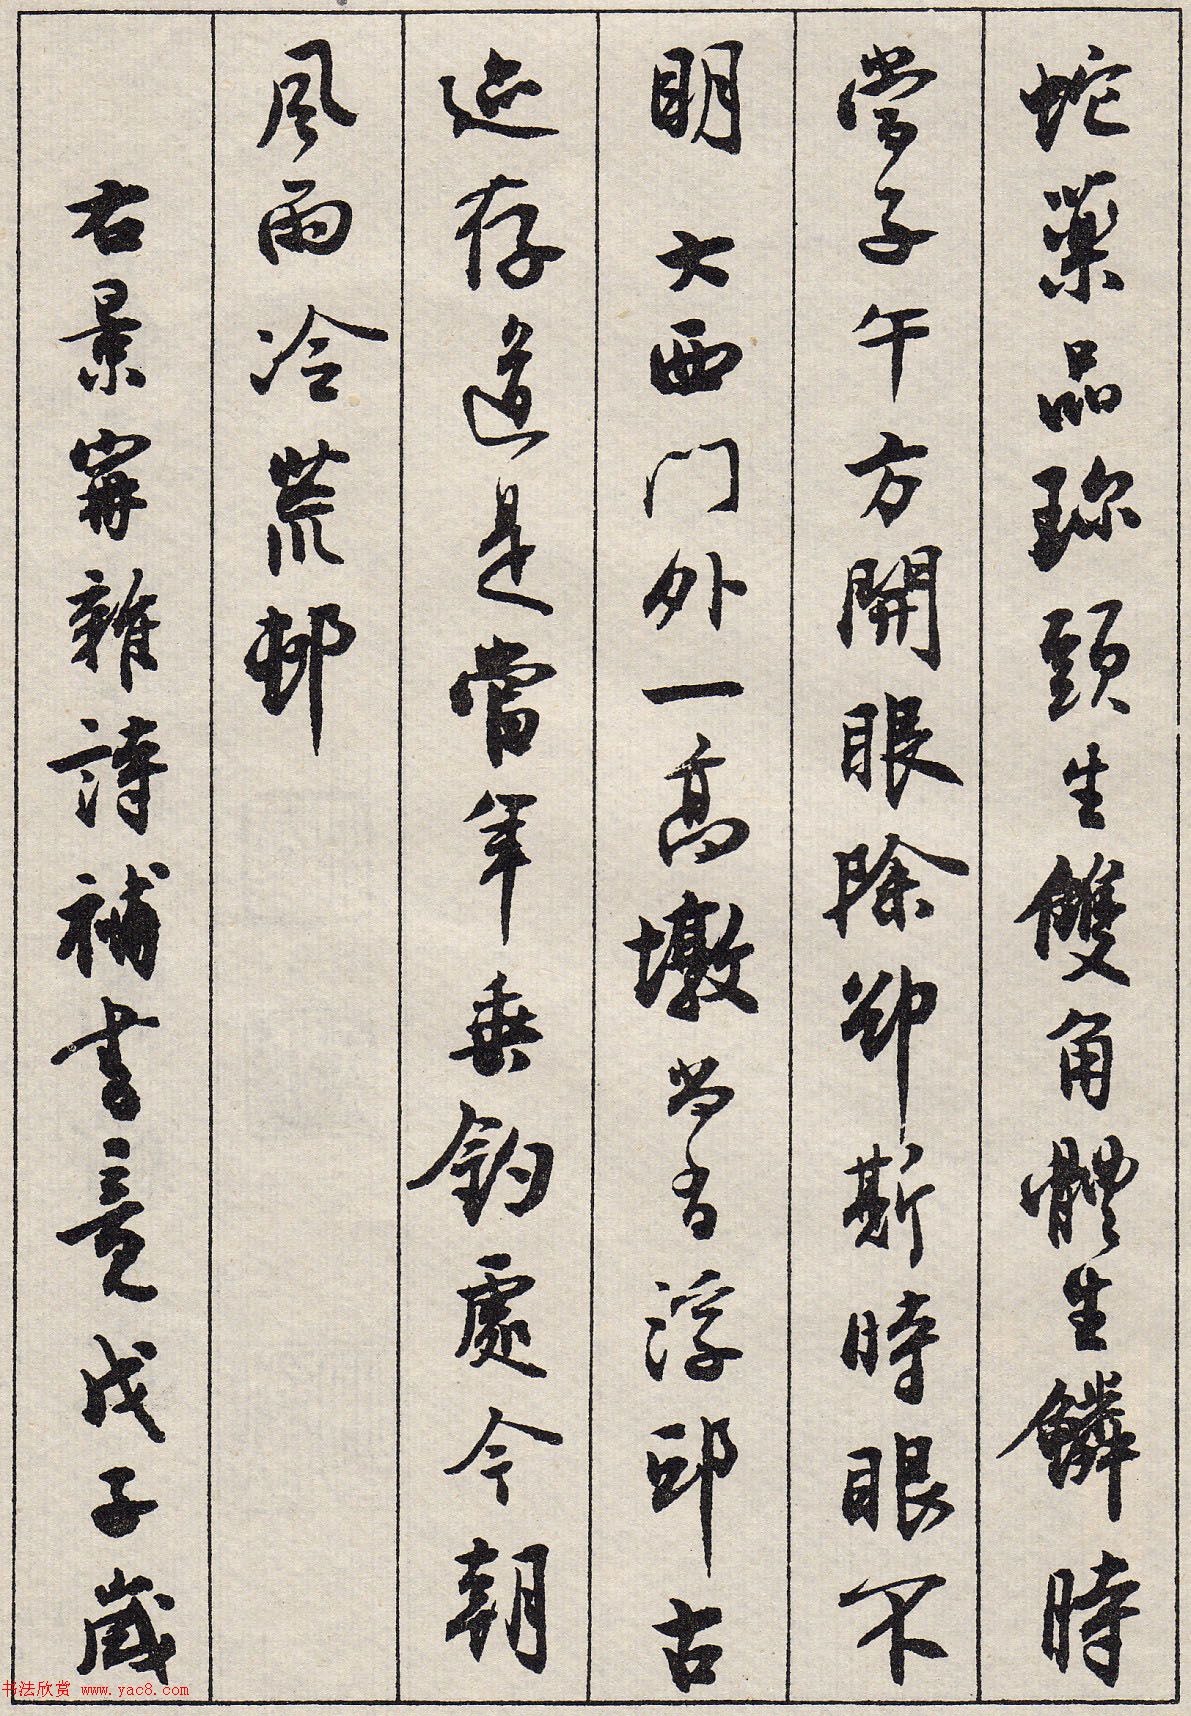 蛇藥品珎頭生雙角體生鱗時
當子午方開眼除却斯時眼不
朙 大西門外一高墩尚有浮邱古
迹存道是當年垂釣處今朝
風雨冷荒邨
右景甯雜詩補書竟戊子歲
书法欣赏 www.yac8.com